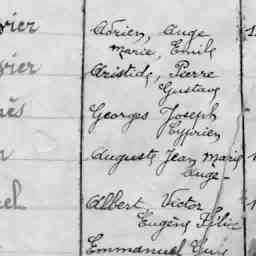 vier
Adrien, Ange
Marie, Emile
vier
Aristide, Pierre
Gustave
Georges Joseph
Cyprien
Auguste Jean Marie
Ange -
Albert Victor
Eugène Félix
Emmanuel